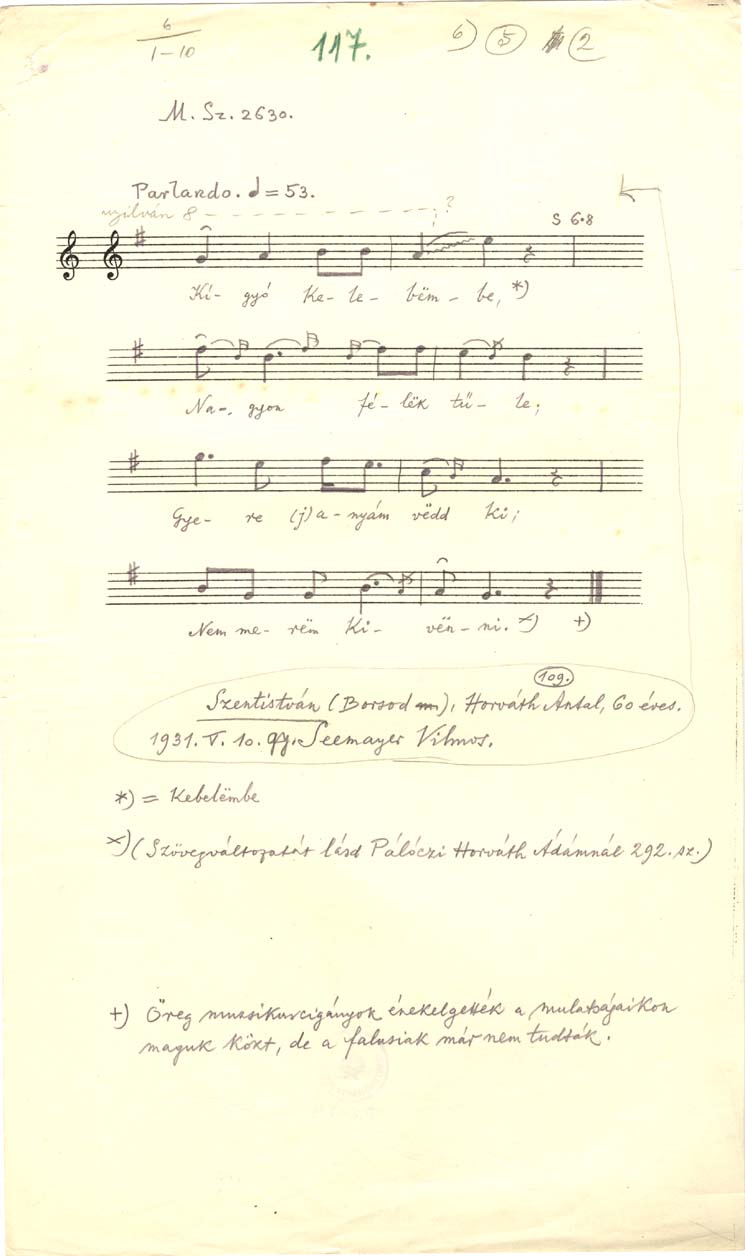 6
1-10
117.
6) 5 2
M. Sz. 2630.
Parlando. ♩= 53.
nyilván 8 - - - - - - - - - - ?
S 6·8
Kí- gyó Ke- le- bëm- be, *)
Na-, gyon fé- lëk tű- le;
Gye- re (j)a- nyám vëdd ki;
Nem me- rëm Ki- vën- ni. ×) +)
109.
Szentistván (Borsod m), Horváth Antal, 60 éves.
1931. V. 10. Gy. Seemayer Vilmos.
*) = Kebelëmbe
×) (Szövegváltozatát lásd Pálóczi Horváth Ádámnál 292. sz.)
+) Öreg muzsikuscigányok énekelgették a mulatságaikon
maguk közt, de a falusiak már nem tudták.